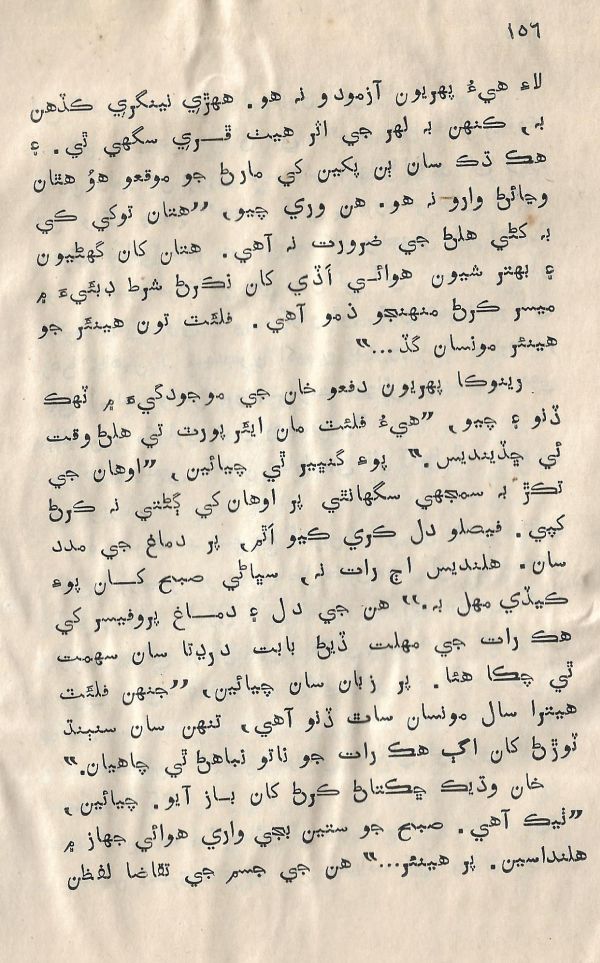 ١٥٦
لاءِ هيءُ پهريون آزمودو نہ هو. ههڙي نينگري ڪڏهن
بہ، ڪنهن بہ لهر جي اثر هيٺ ڦري سگهي ٿي. ۽
هڪ ڌڪ سان ٻن پکين کي مارڻ جو موقعو هوُ هٿان
وڃائڻ وارو نہ هو. هن وري چيو، ”هتان توکي ڪي
بہ کڻي هلڻ جي ضرورت نہ آهي. هتان کان گهڻيون
۽ بهتر شيون هوائي اَڏي کان نڪرڻ شرط دبئيءَ ۾
ميسر ڪرڻ منهنجو ذمو آهي. فلئٽ تون هينئر جو
هينئر مونسان گڏ...“
رينوڪا پهريون دفعو خان جي موجودگيءَ ۾ ٽهڪ
ڏنو ۽ چيو، ”هيءُ فلئٽ مان ايئرپورٽ تي هلڻ وقت
ئي ڇڏينديس.“ پوءِ گنڀير ٿي چيائين، ”اوهان جي
تڪڙ بہ سمجهي سگهانٿي پر اوهان کي ڳڻتي نہ ڪرڻ
کپي. فيصلو دل ڪري ڪيو اَٿم، پر دماغ جي مدد
سان. هلنديس اڄ رات نہ، سڀاڻي صبح کان پوءِ
ڪيڏي مهل بہ.“ هن جي دل ۽ دماغ پروفيسر کي
هڪ رات جي مهلت ڏيڻ بابت درڍتا سان سهمت
ٿي چڪا هئا. پر زبان سان چيائين، ”جنهن فلئٽ
هيترا سال مونسان ساٿ ڏنو آهي، تنهن سان سنٻنڌ
ٽوڙڻ کان اڳ هڪ رات جو ناتو نباهڻ ٿي چاهيان.“
خان وڌيڪ ڇڪتاڻ ڪرڻ کان باز آيو. چيائين،
”ٺيڪ آهي. صبح جو ستين بجي واري هوائي جهاز ۾
هلنداسين. پر هينئر...“ هن جي جسم جي تقاضا لفظن